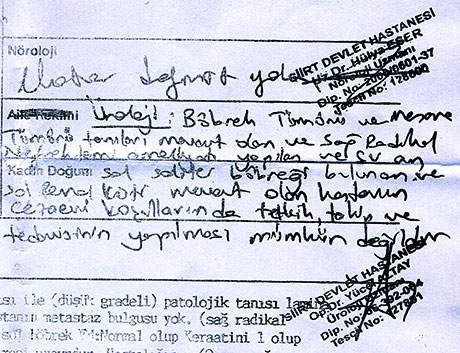 Nöroloji
SİİRT DEVLET HASTANESİ
Uz. Dr. Hülya ESER
Nöroloji Uzmanı
Dip. No: 2006/0601-37
Tescil No: 128600
Motor defisit yok
Üroloji: Böbrek Tümörü ve mesane
Tümörü tanıları mevcut olan ve sağ Radikal
Nefrektomi ameliyatı yapılan ve şu an
Kadın Doğum
sol soliter böbreği bulunan ve
sol Renal kisti mevcut olan hastanın
cezaevi koşullarında tetkik, takip ve
tedavisinin yapılması mümkün değildir
SİİRT DEVLET HASTANESİ
Opr. Dr. Yücel
Üroloji
Dip. No:
Tescil No:
ısı ile (düşük gradeli) patolojik tanısı
stanın metastaz bulgusu yok. (sağ radikal
sol böbrek Normal olup Keraatini 1 olup